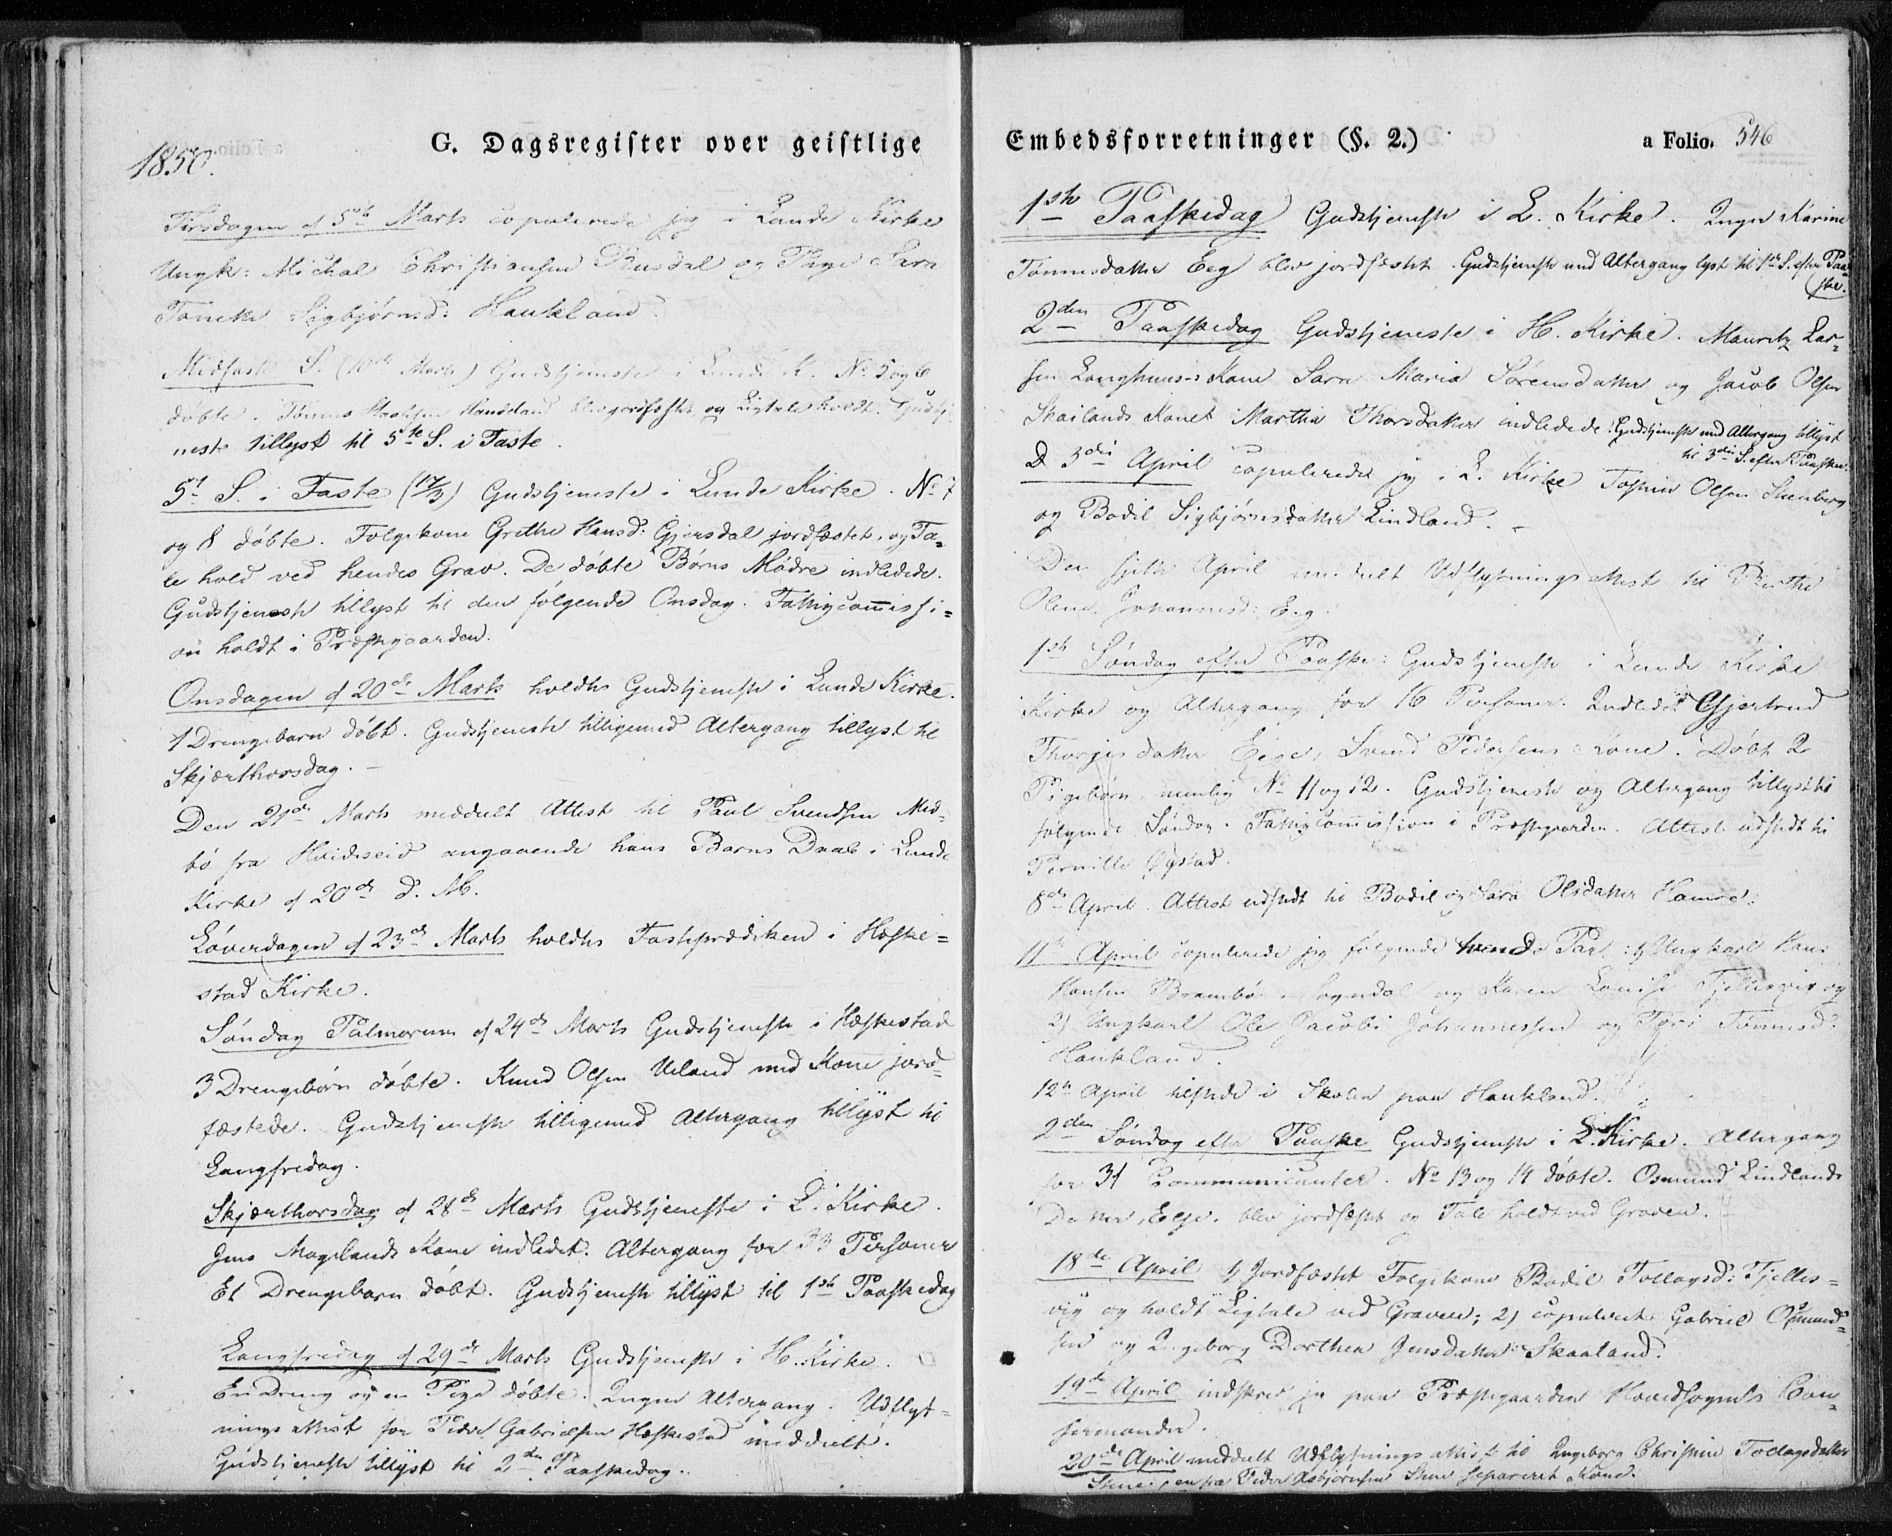 1850.
G. Dagsregister over geistlige
Tirsdagen d 5te Marts copulerede jeg i Lunde Kirke
Ungk: Michal Christiansen Rusdal og Pige Sara
Tonette Sigbjørnsd: Haukland.
Midfaste S. (10de Marts) Gudstjeneste i Lunde K. No 5 og 6
døbte. Tønnes Haukland blev jordfæstet og Ligtale holdt. Gudstje-
neste tillyst til 5te S. i Faste.
5te S. i Faste (17/3) Gudstjeneste i Lunde Kirke. No 7
og 8 døbte. Folgekone Grethe Hansd: Gjersdal jordfæstet, og Ta-
le hold ved hendes Grav. De døbte Børns Mødre indledede.
Gudstjeneste tillyst til den følgende Onsdag. Fattigcommissi-
on holdt i Præstegaarden.
Onsdagen d 20de Marts holdtes Gudstjeneste i Lunde Kirke.
1 Drengebarn døbt. Gudstjeneste tilligemed Altergang tillyst til
Skjærthorsdag.
Den 21de Marts meddeelt Attest til Paul Svendsen Mid-
bø fra Hvideseid angaaende hans Barns Daab i Lunde
Kirke d 20de d. M.
Løverdagen d 23de Marts holdtes Fasteprædiken i Heske-
stad Kirke.
Søndag Palmarum d 24de Marts Gudstjeneste i Heskestad
3 Drengebørn døbte. Knud Olsen Ueland med Kone jord-
fæstede. Gudstjeneste tilligemed Altergang tillyst til
Langfredag.
Skjærthorsdag d 28de Marts Gudstjeneste i L. Kirke.
Jens Mogelands Kone indledet. Altergang for 33 Personer
Et Drengebarn døbt. Gudstjeneste tillyst til 1ste Paaskedag
Langfredag d 29de Marts Gudstjeneste i H. Kirke.
En Dreng og en Pige døbte. Ingen Altergang. Udflyt-
nings attest for Peder Gabrielsen Heskestad meddeelt.
Gudstjeneste tillyst til 2den Paaskedag.
Embedsforretninger (§. 2.)
a Folio. 546
1ste Paaskedag Gudstjeneste i L. Kirke. Karine
Tønnesdatter Eeg blev jordfæstet. Gudstjeneste med Altergang lyst til 1ste S. efter Paa-
ske.
2den Paaskedag Gudstjeneste i H. Kirke. Mauritz Lar-
sen Langhuus's Kone Sara Maria Sørensdatter og Jacob Olsen
Skailands Kone Martha Thorsdatter indledede. Gudstjeneste med Altergang tillyst
til 3die S. efter Paaske.
D 3die April copulerede jeg i L. Kirke Olsen Steenberg
og Bodil Sigbjørnsdatter Lindland.
Den sjette April meddeelt Udflytnings attest til Berthe
Olene Johannesd: Eeg.
1ste Søndag efter Paaske: Gudstjeneste i Lunde Kirke
Kirke og Altergang for 16 Personer. Indledet Gjertrud
Thorgersdatter Eeg, Svend Pedersens Kone. Døbt 2
Pigebørn nemlig No 11 og 12. Gudstjeneste og Altergang tillyst til
følgende Søndag. Fattigcommission i Præstegaarden. Attest udstedt til
Pernille Ystad.
8de April. Attest udstedt til Bodil og Sara Olsdatter Hamre.
11te April copulerede jeg følgende tvende Par: 1) Ungkarl Hans
Hansen Brambø i Sogndal og Karen Louise Fjellesvig og
2) Ungkarl Ole Jacob Johannessen og Tønnesd:
Haukland.
12te April tilstede i Skolen paa Haukland.
2den Søndag efter Paaske Gudstjeneste i L. Kirke. Altergang
for 31 Communicanter. No 13 og 14 døbte. Osmund Lindlands
Datter, Eege, blev jordfæstet og Tale holdt ved Graven.
18de April 1) Jordfæstet Folgekone Bodil Tollagsd: Fjelles-
vig og holdt Ligtale ved Graven; 2) copuleret Gabriel Osmund-
sen og Ingeborg Dorthea Jensdatter Skaaland.
19de April indskrev jeg paa Præstegaarden Hovedsognets Con-
firmander.
20de April meddeelt Udflytnings attest til Ingeborg Christine Tollagsdatter
Stene, en fra Peder Asbjørnsen Stene separeret Kone.